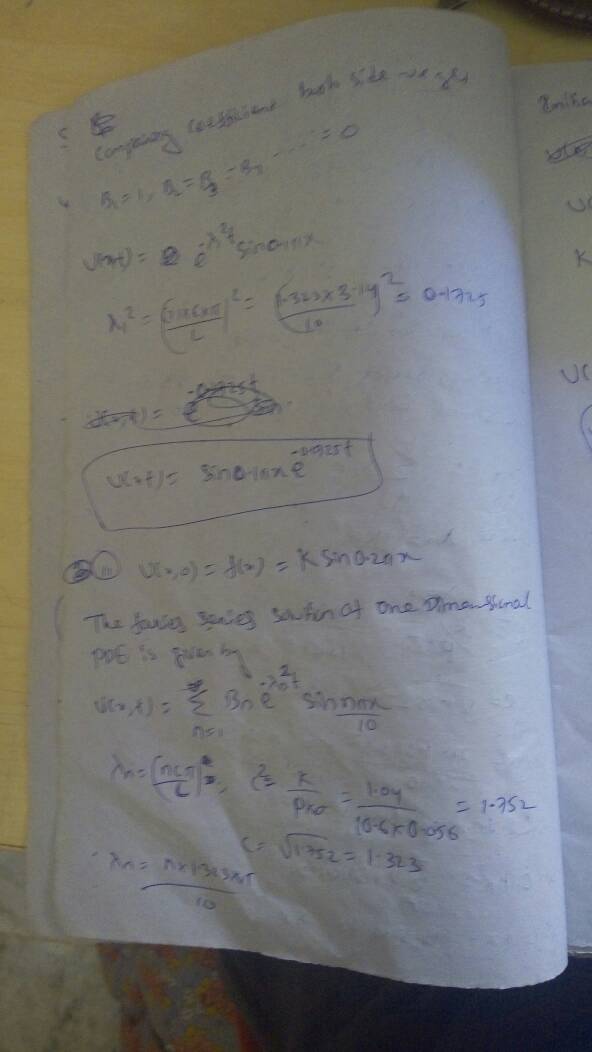 Comparing coefficient both side we get
B₁ = 1, B₂ = B₃ = B₄ ..... = 0
U(x,t) = e^{-λ²t} sin0.1πx
λ₁² = (1×6×π/L)² = (1.323×3.14/10)² = 0.1725
U(x,t) = sin0.1πx e^{-0.1725t}
(ii) U(x,0) = f(x) = K sin0.2πx
The fouries series soution of one Dimensional
PDE is given by
U(x,t) = Σ n=1 Bn e^{-λn²t} sin nπx/10
λn = (ncπ/L), c² = K/ρKσ = 1.04/10.6×0.056 = 1.752
c = √1.752 = 1.323
λn = n×1.323×π/10
U(
K
U(